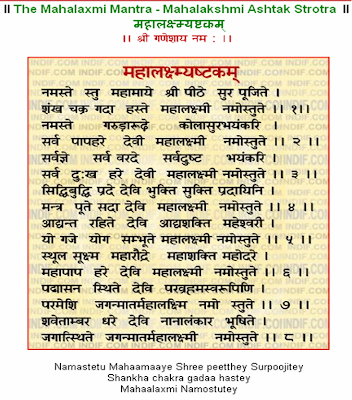 ॥ The Mahalaxmi Mantra - Mahalakshmi Ashtak Strotra ॥
महालक्ष्म्यष्टकम्
।। श्री गणेशाय नम : ।।
महालक्ष्म्यष्टकम्
नमस्ते स्तु महामाये श्री पीठे सुर पूजिते ।
शंख चक्र गदा हस्ते महालक्ष्मी नमोस्तुते ।। १।।
नमस्ते गरुडारूढ़े कोलासुरभयंकरि ।
सर्व पापहरे देवी महालक्ष्मी नमोस्तुते ।। २ ।।
सर्वज्ञे सर्व वरदे सर्वदुष्ट भयंकरि ।
सर्व दुःख हरे देवी महालक्ष्मी नमोस्तुते ।। ३ ।।
सिद्धिबुद्धि प्रदे देवि भुक्ति मुक्ति प्रदायिनि ।
मन्त्र पूते सदा देवि महालक्ष्मी नमोस्तुते ।। ४ ।।
आद्यन्त रहिते देवि आद्यशक्ति महेश्वरी ।
यो गजे योग सम्भूते महालक्ष्मी नमोस्तुते ।। ५ ।।
स्थूल सूक्ष्म महारौद्रे महाशक्ति महोदरे ।
महापाप हरे देवि महालक्ष्मी नमोस्तुते ।। ६ ।।
पद्मासन स्थिते देवि परब्रह्मस्वरूपिणि ।
परमेशि जगन्मातर्महालक्ष्मि नमो स्तुते ।। ७ ।।
शवेताम्बर धरे देवि नानालंकार भूषिते ।
जगात्स्थिते जगन्मातर्महालक्ष्मी नमोस्तुते ।। ८ ।।
Namastetu Mahaamaaye Shree peetthey Surpoojitey
Shankha chakra gadaa hastey
Mahaalaxmi Namostutey